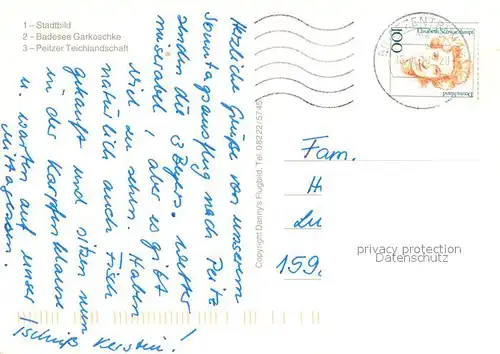 1 – Stadtbild
2 – Badesee Garkoschke
3 – Peitzer Teichlandschaft
Herzliche Grüße von unserem
Sonntagsausflug nach Peitz
senden die 3 Beyers. Wetter
miserabel! aber es gibt
viel zu sehen. Haben
natürlich auch Fisch
gekauft und sitzen nun
in der Karpfenklause
u. warten auf unser
Mittagessen.
Tschüß Kerstin!
Copyright Danny's Flugbild, Tel. 08222/5745
100
Elisabeth Schwarzhaupt
Deutschland
Fam.
159
privacy protection
Datenschutz